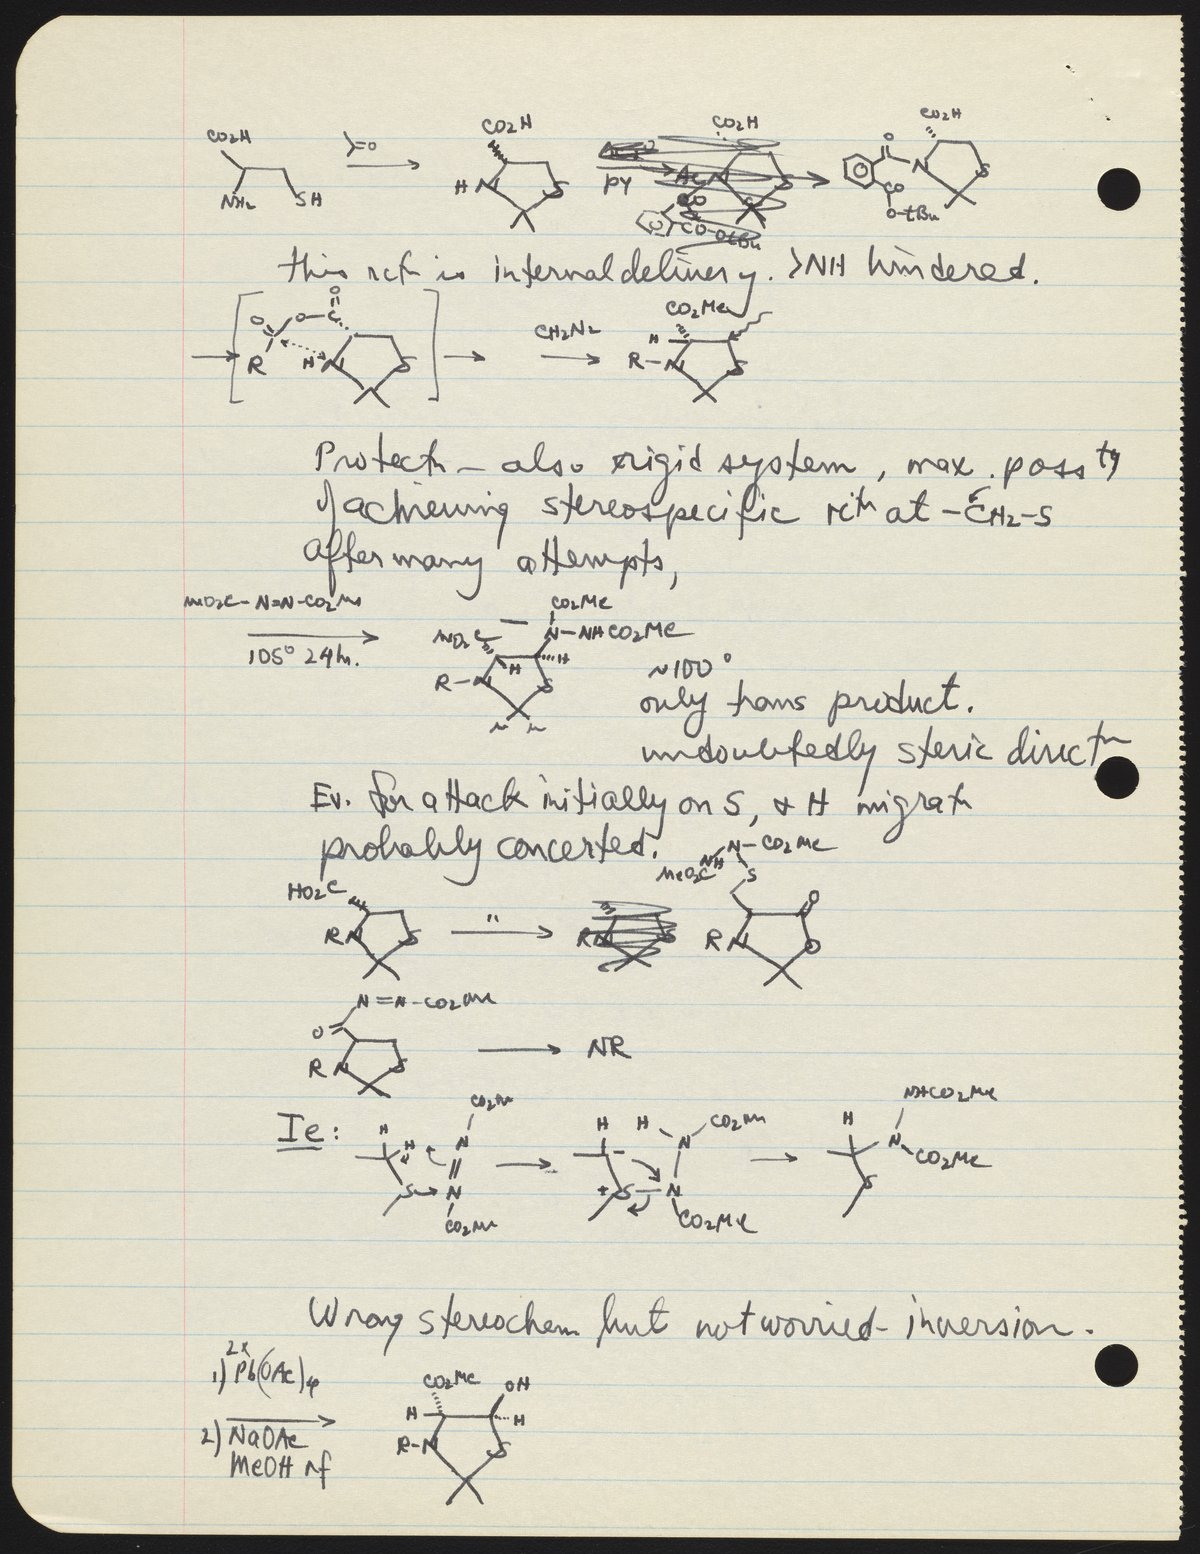 CO2H
NH2 SH
>=O
CO2H
HN S
PY
Ac
CO2H
CO-OtBu
CO2H
O
N S
CO
O-tBu
this rctn is internal delivery. >NH hindered.
O O C O
R H N S
CH2N2
CO2Me
H
R-N S
Protectn - also rigid system, max. possty
of achieving stereospecific rctn at -CH2-S
After many attempts,
MeO2C-N=N-CO2Me
105° 24hr.
CO2Me
MeO2C N-NHCO2Me
H H
R-N S
~100°
only trans product.
undoubtedly steric directn
Ev. for attack initially on S, & H migratn
probably concerted.
N-CO2Me
MeO2C NH
S
HO2C
RN S
"
RN S
O
RN O
N=N-CO2Me
O
RN S
NR
Ie:
H H
S
CO2Me
N
N
CO2Me
H H
N CO2Me
+S-N
CO2Me
H
NHCO2Me
N
CO2Me
S
Wrong stereochem but not worried - inversion.
2x
1) Pb(OAc)4
2) NaOAc
MeOH rf
CO2Me OH
H H
R-N S